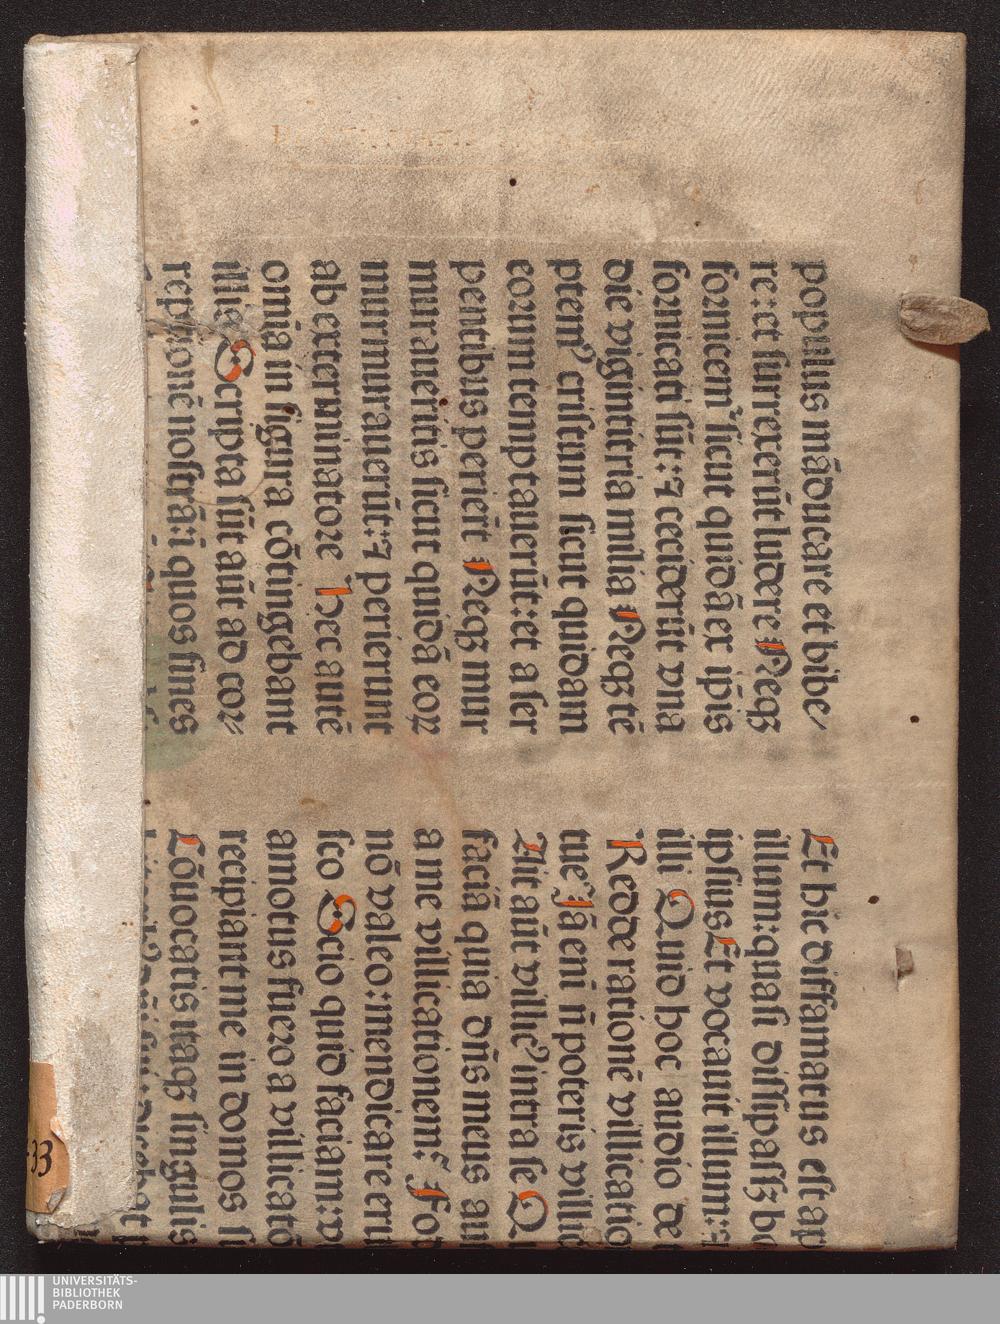 populus mãducare et bibe
re: et surrexerũt ludere Neqȝ
fornicem᷒ sicut quidã ex ip̃is
fornicati sũt: ⁊ ceciderũt vna
die viginti tria milia Neqȝ tē
ptem᷒ cristum sicut quidam
eorum temptauerũt: et a ser
pentibus perierũt Neqȝ mur
muraueritis sicut quidã eoꝝ
murmurauerũt: ⁊ perierunt
ab exterminatore Hec autē
omĩa in figura cõtingebant
illis Scripta sũt aũt ad cor
reptionē nostrã: ĩ quos fines
Et hic diffamatus est ap
illum: quasi dissipassȝ bo
ipsius Et vocauit illum: ⁊
illi Quid hoc audio de
Redde rationē villicatio
tue Iã eni n̄ poteris villic
Ait aũt villic᷒ intra se Q
faciã quia dñs meus au
a me villicationem: Fod
nõ valeo: mendicare eru
sco Scio quid faciam: vt
amotus fuero a villicatõ
recipiant me in domos s
Cõuocatis itaqȝ singulis
33
UNIVERSITÄTS-
BIBLIOTHEK
PADERBORN